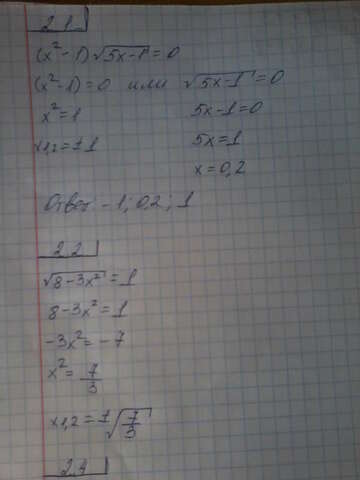 2.1.
(x²-1)√(5x-1)=0
(x²-1)=0 или √(5x-1)=0
x²=1 5x-1=0
x1,2=±1 5x=1
x=0,2
Ответ: -1; 0,2; 1
2.2
√(8-3x²)=1
8-3x²=1
-3x²=-7
x²=7/3
x1,2=±√(7/3)
2.4